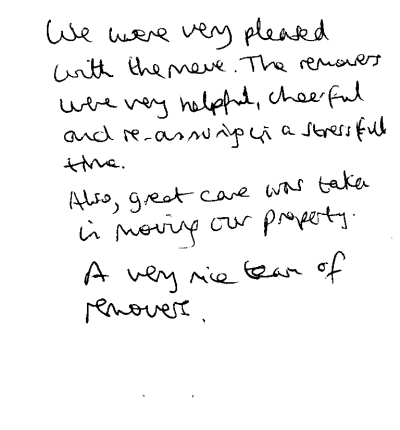 We were very pleased
with the move. The removers
were very helpful, cheerful
and re-assuring in a stressful
time.
Also, great care was taken
in moving our property.
A very nice team of
removers.